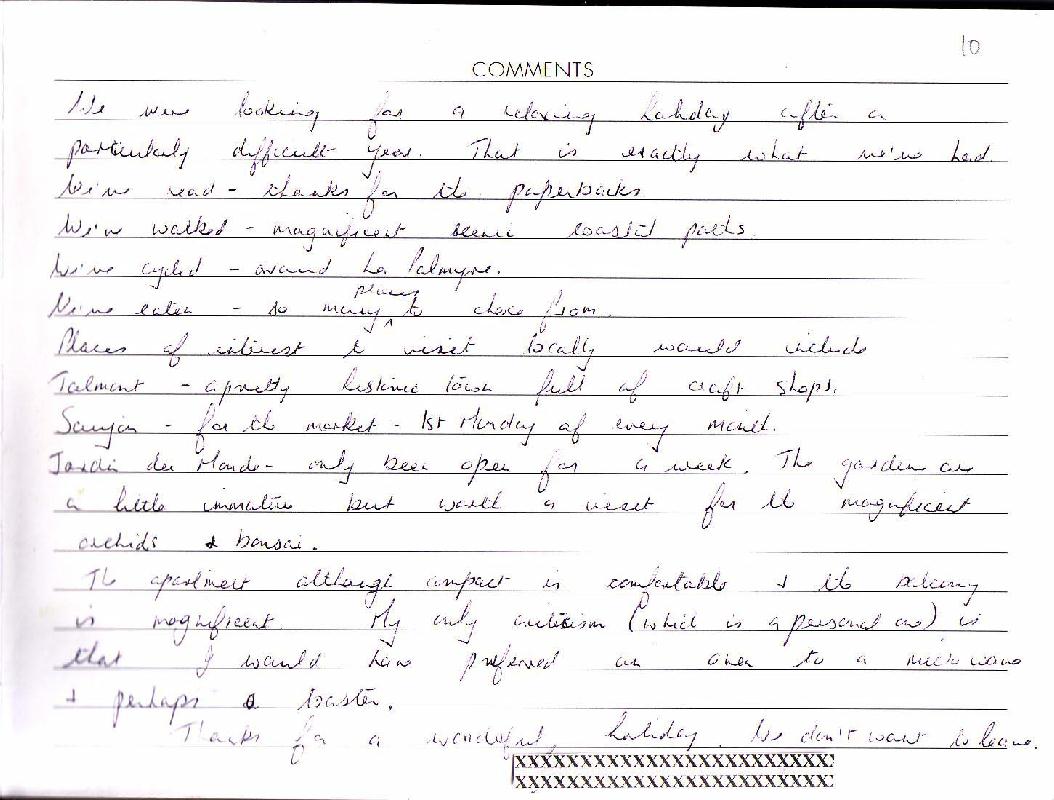 10
COMMENTS
We were looking for a relaxing holiday after a
particularly difficult year. That is exactly what we've had.
We've read - thanks for the paperbacks
We've walked - magnificent scenic coastal paths.
We've cycled - around La Palmyre.
places
We've eaten - so many ^ to chose from.
Places of interest to visit locally would include
Talmont - a pretty historic town full of craft shops.
Saujon - for the market - 1st Monday of every month.
Jardin du Monde - only been open for a week. The gardens are
a little immature but worth a visit for the magnificent
orchids & bonsai.
The apartment although compact is comfortable & the balcony
is magnificent. My only criticism (which is a personal one) is
that I would have preferred an oven to a microwave
& perhaps a toaster.
Thanks for a wonderful holiday. We don't want to leave.
XXXXXXXXXXXXXXXXXXXXXXXXX
XXXXXXXXXXXXXXXXXXXXXXXXX